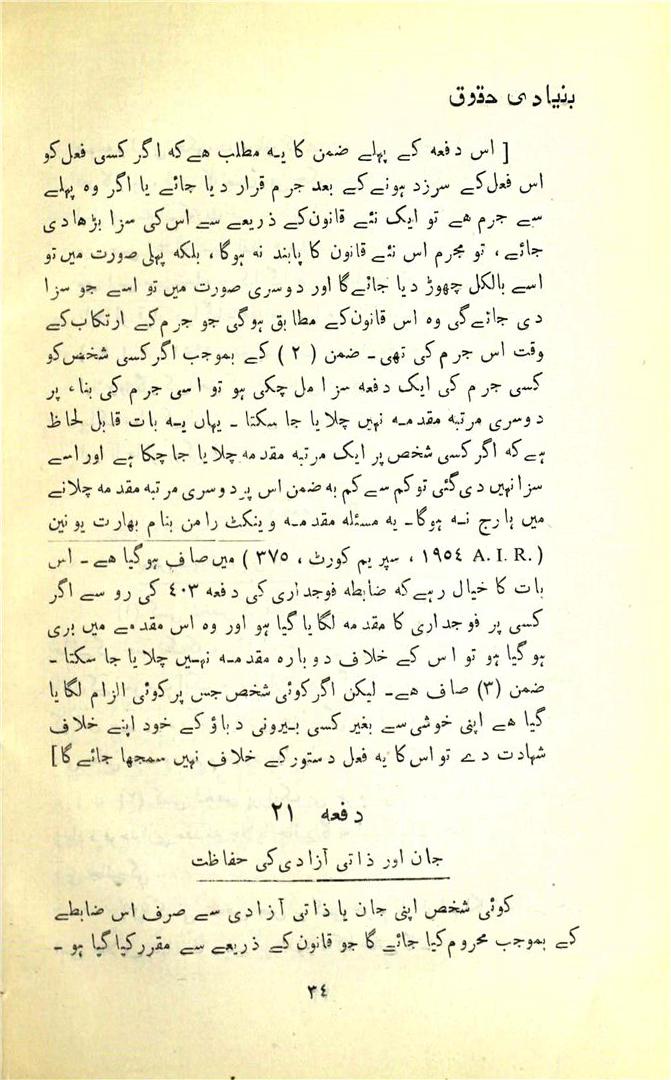 بنیادی حقوق
[ اس دفعہ کے پہلے ضمن کا یہ مطلب ہے کہ اگر کسی فعل کو
اس فعل کے سرزد ہونے کے بعد جرم قرار دیا جائے یا اگر وہ پہلے
سے جرم ہے تو ایک نئے قانون کے ذریعے سے اس کی سزا بڑھا دی
جائے ، تو مجرم اس نئے قانون کا پابند نہ ہوگا ، بلکہ پہلی صورت میں تو
اسے بالکل چھوڑ دیا جائے گا اور دوسری صورت میں تو اسے جو سزا
دی جائے گی وہ اس قانون کے مطابق ہوگی جو جرم کے ارتکاب کے
وقت اس جرم کی تھی ۔ ضمن ( ۲ ) کے بموجب اگر کسی شخص کو
کسی جرم کی ایک دفعہ سزا مل چکی ہو تو اسی جرم کی بناء پر
دوسری مرتبہ مقدمہ نہیں چلایا جا سکتا ۔ یہاں یہ بات قابل لحاظ
ہے کہ اگر کسی شخص پر ایک مرتبہ مقدمہ چلایا جا چکا ہے اور اسے
سزا نہیں دی گئی تو کم سے کم یہ ضمن اس پر دوسری مرتبہ مقدمہ چلانے
میں ہارج نہ ہوگا ۔ یہ مسئلہ مقدمہ وینکٹ رامن بنام بھارت یونین
( A. I. R. ۱۹٥٤ ، سپریم کورٹ ، ۳۷٥ ) میں صاف ہوگیا ہے ۔ اس
بات کا خیال رہے کہ ضابطہ فوجداری کی دفعہ ٤۰۳ کی رو سے اگر
کسی پر فوجداری کا مقدمہ لگایا گیا ہو اور وہ اس مقدمے میں بری
ہو گیا ہو تو اس کے خلاف دوبارہ مقدمہ نہیں چلایا جا سکتا ۔
ضمن (۳) صاف ہے ۔ لیکن اگر کوئی شخص جس پر کوئی الزام لگایا
گیا ہے اپنی خوشی سے بغیر کسی بیرونی دباؤ کے خود اپنے خلاف
شہادت دے تو اس کا یہ فعل دستور کے خلاف نہیں سمجھا جائے گا]
دفعہ ۲۱
جان اور ذاتی آزادی کی حفاظت
کوئی شخص اپنی جان یا ذاتی آزادی سے صرف اس ضابطے
کے بموجب محروم کیا جائے گا جو قانون کے ذریعے سے مقرر کیا گیا ہو ۔
۳٤